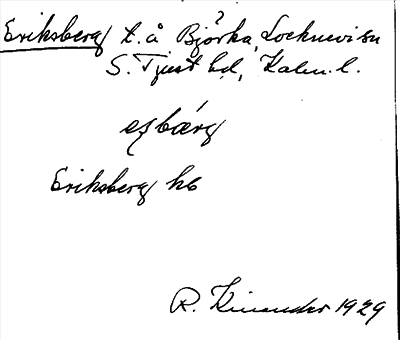 Eriksberg t. å Björka, Locknevi sn
?
S. Tjust hd, Kalm. l.
esbærg
Eriksberg hb
R. Kinander 1929